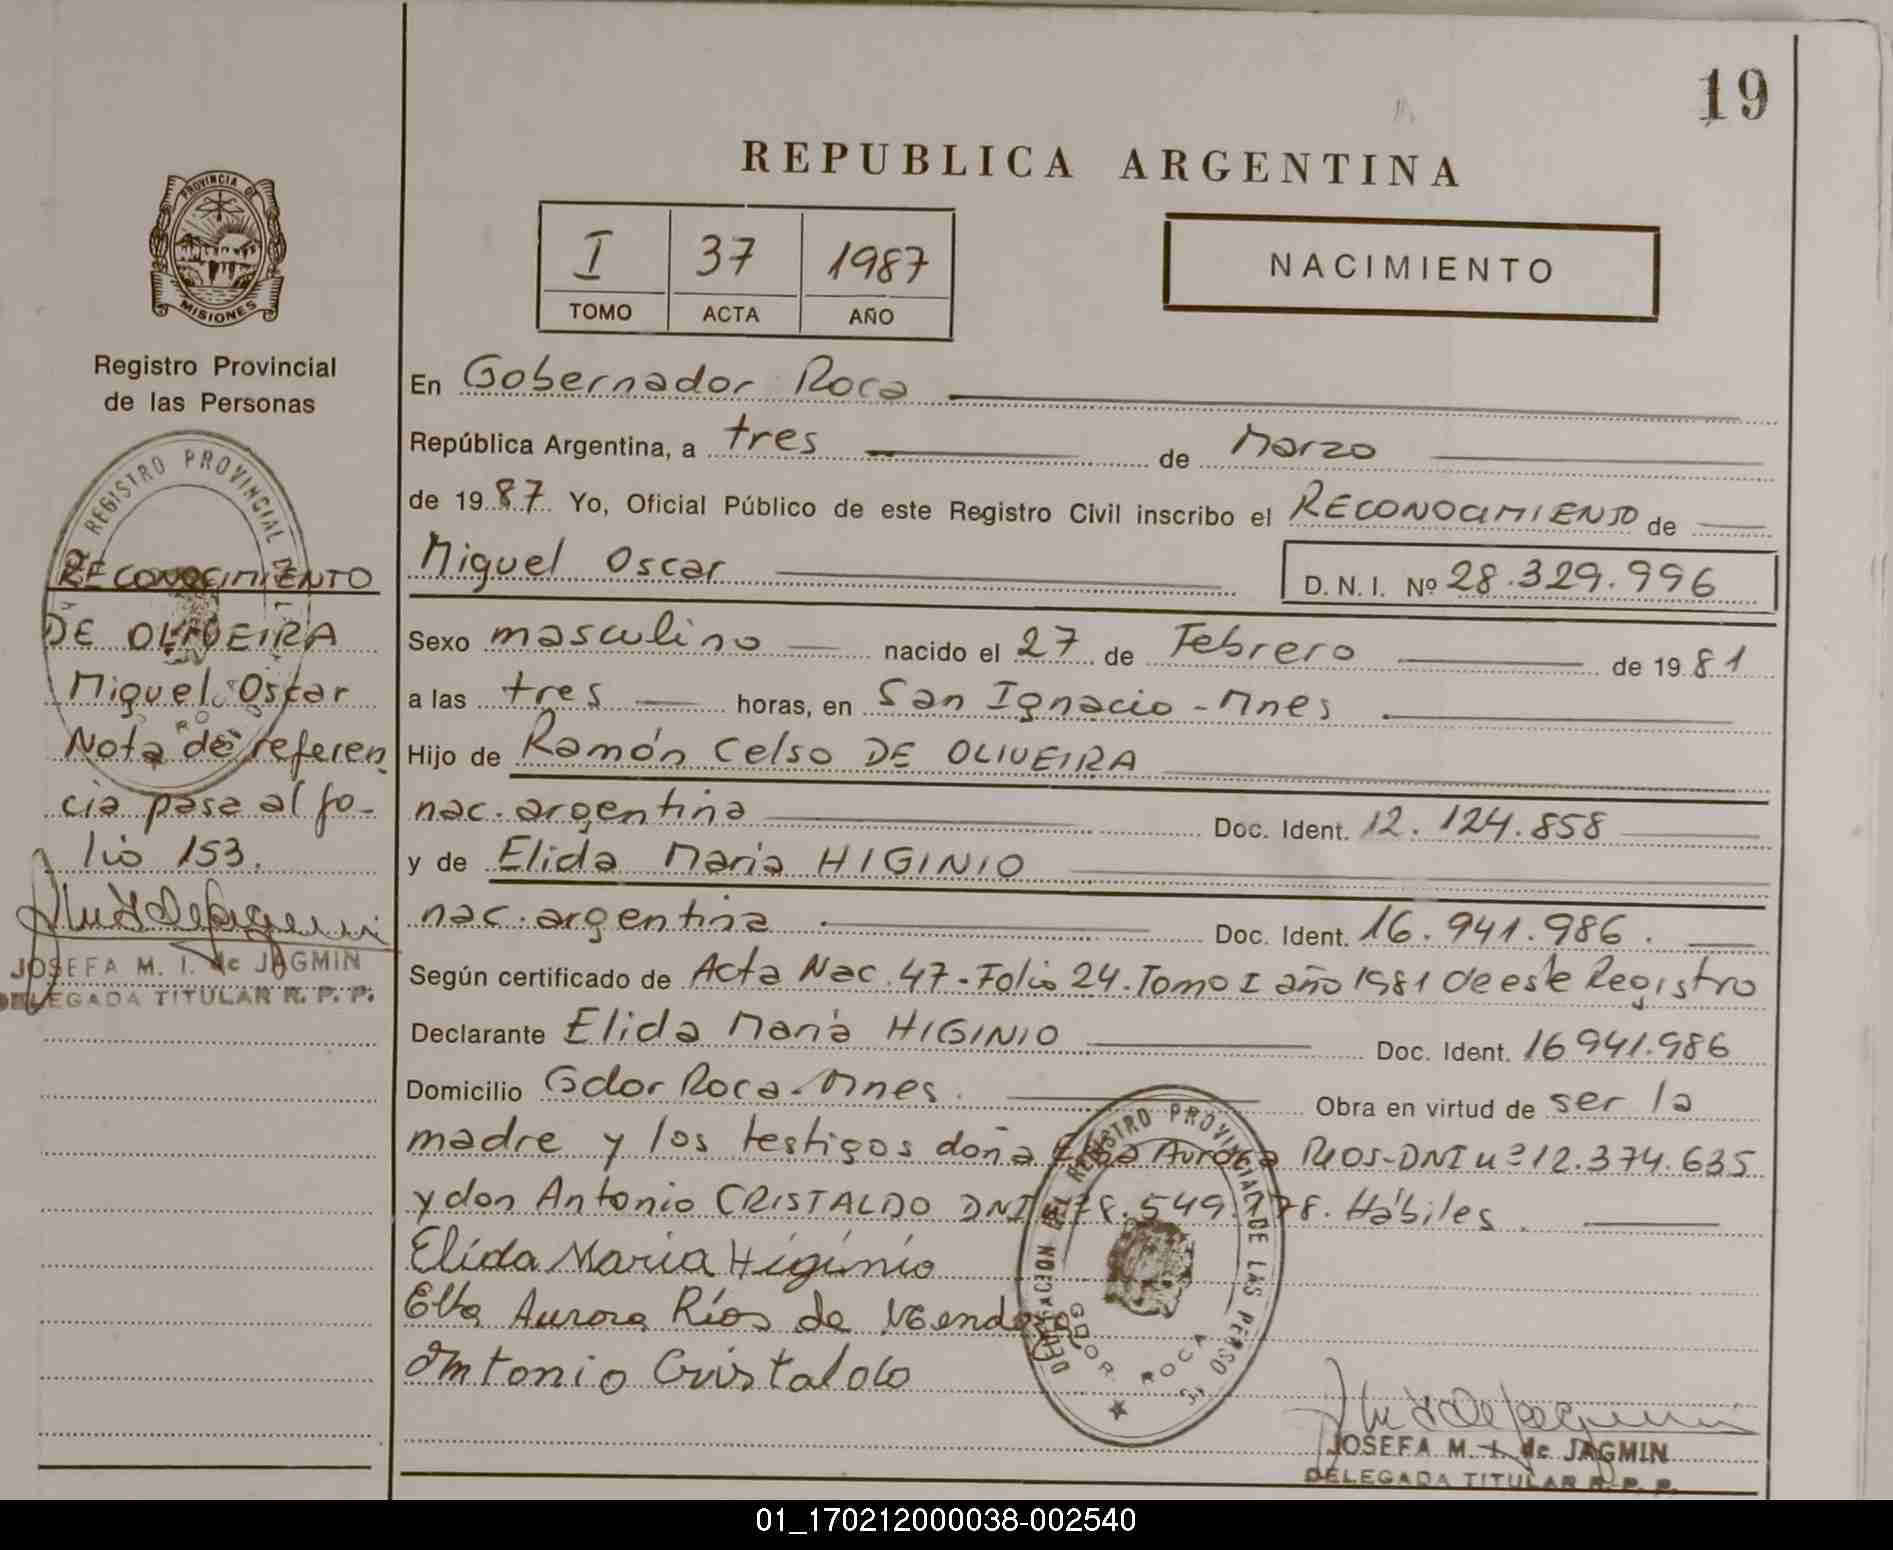 19
REPUBLICA ARGENTINA
I 37 1987
TOMO ACTA AÑO
NACIMIENTO
PROVINCIA DE
MISIONES
Registro Provincial
de las Personas
REGISTRO PROVINCIAL DE
RECONOCIMIENTO
DE OLIVEIRA
Miguel Oscar
Nota de referen
cia pasa al fo-
lio 153.
JOSEFA M. I. de JAGMIN
DELEGADA TITULAR R. P. P.
En Gobernador Roca
República Argentina, a tres de Marzo
de 1987 Yo, Oficial Público de este Registro Civil inscribo el RECONOCIMIENTO de
Miguel Oscar D. N. I. Nº 28.329.996
Sexo masculino nacido el 27 de Febrero de 1981
a las tres horas, en San Ignacio - Mnes
Hijo de Ramón Celso DE OLIVEIRA
nac. argentina Doc. Ident. 12.124.858
y de Elida Maria HIGINIO
nac. argentina Doc. Ident. 16.941.986.
Según certificado de Acta Nac. 47 - Folio 24. Tomo I año 1981 de este Registro
Declarante Elida Maria HIGINIO Doc. Ident. 16941.986
Domicilio Gdor Roca - Mnes. Obra en virtud de ser la
madre y los testigos doña Elba Aurora RIOS - DNI nº 12.374.635
y don Antonio CRISTALDO DNI 549. Hábiles.
Elida Maria Higinio
Elba Aurora Ríos de Mendoza
Antonio Cristaldo
DELEGACION DEL REGISTRO PROVINCIAL DE LAS PERSO
GDOR. ROCA
JOSEFA M. I. de JAGMIN
DELEGADA TITULAR R. P. P.
01_170212000038-002540